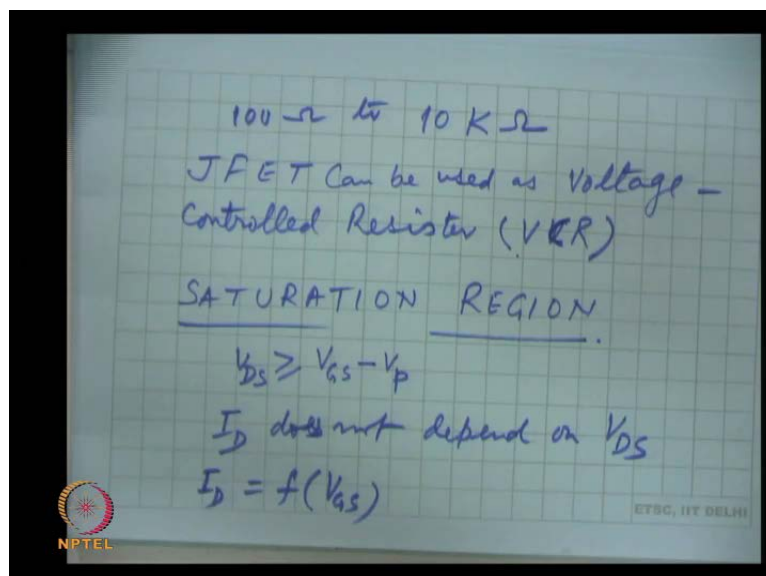 100 Ω to 10 K Ω
JFET Can be used as Voltage –
Controlled Resister (VCR)
SATURATION REGION.
V_DS ≥ V_GS – V_P
I_D does not depend on V_DS
I_D = f(V_GS)
ETSC, IIT DELHI
NPTEL